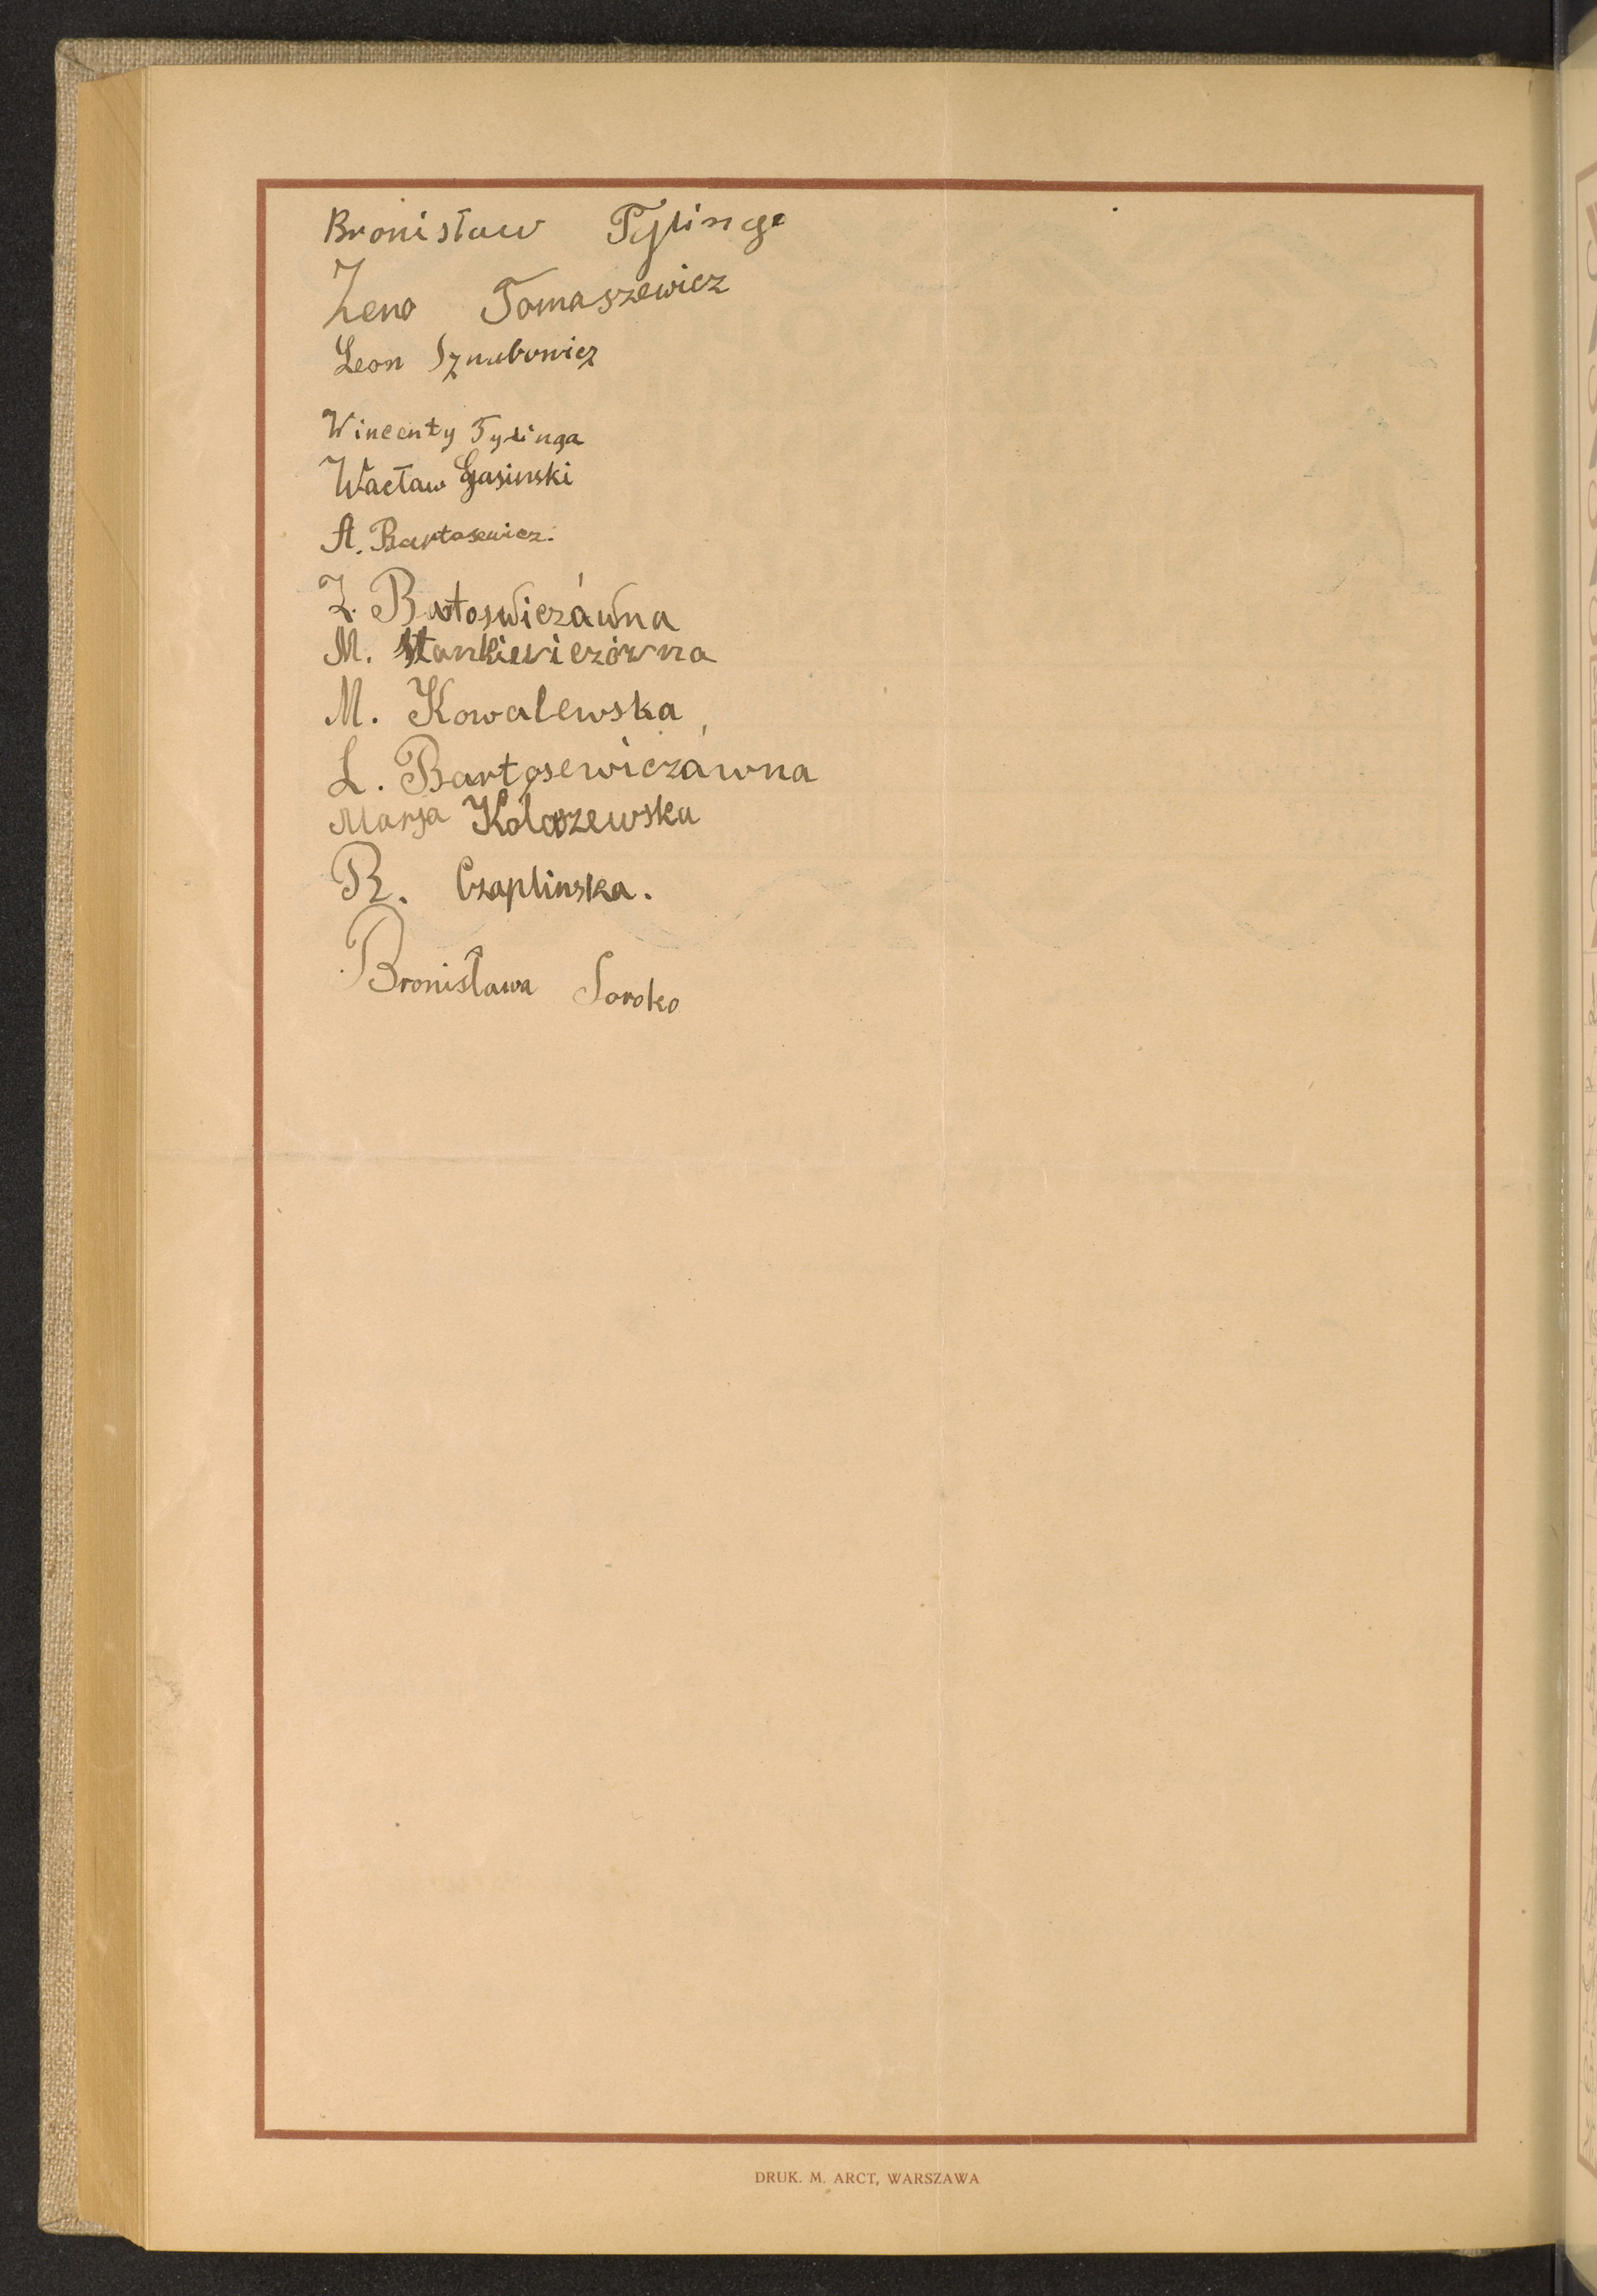 Bronisław Tylinga
Zeno Tomaszewicz
Leon
Wincenty Tylinga
Wacław Gasinski
A. Bartosewicz.
Z. Bartoswiczówna
M. Stankiewiczówna
M. Kowalewska
L. Bartosewiczówna
Marja Kolaszewska
R. Czaplinska.
Bronisława Soroko
DRUK. M. ARCT, WARSZAWA